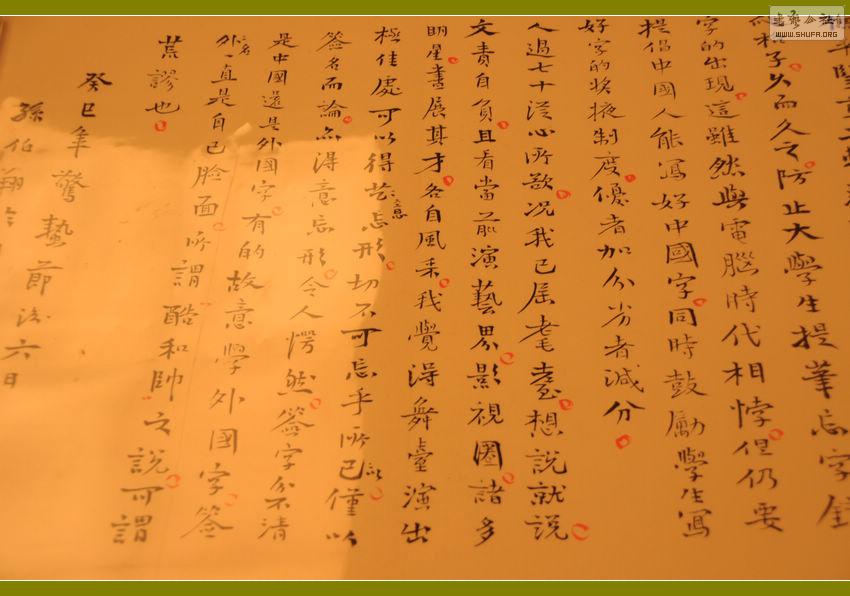 久而久之防止大學生提筆忘字
字的出現這雖然與電腦時代相悖但仍要
提倡中國人能寫好中國字同時鼓勵學生寫
好字的奖掖制度優者加分劣者減分
人過七十從心所欲况我已届耄耋想說就說
文責自負且看當前演藝界影視圈諸多
明星書展其才各自風采我覺得舞臺演出
極佳處可以得意忘形切不可忘乎所以已僅以
簽名而論亦得意忘形令人愕然簽字分不清
是中國還是外國字有的故意學外國字簽
外名一直是自己臉面所謂酷和帥之說可謂
荒謬也
癸巳年驚蟄節後六日
孫伯翔
書法公社
WWW.SHUFA.ORG